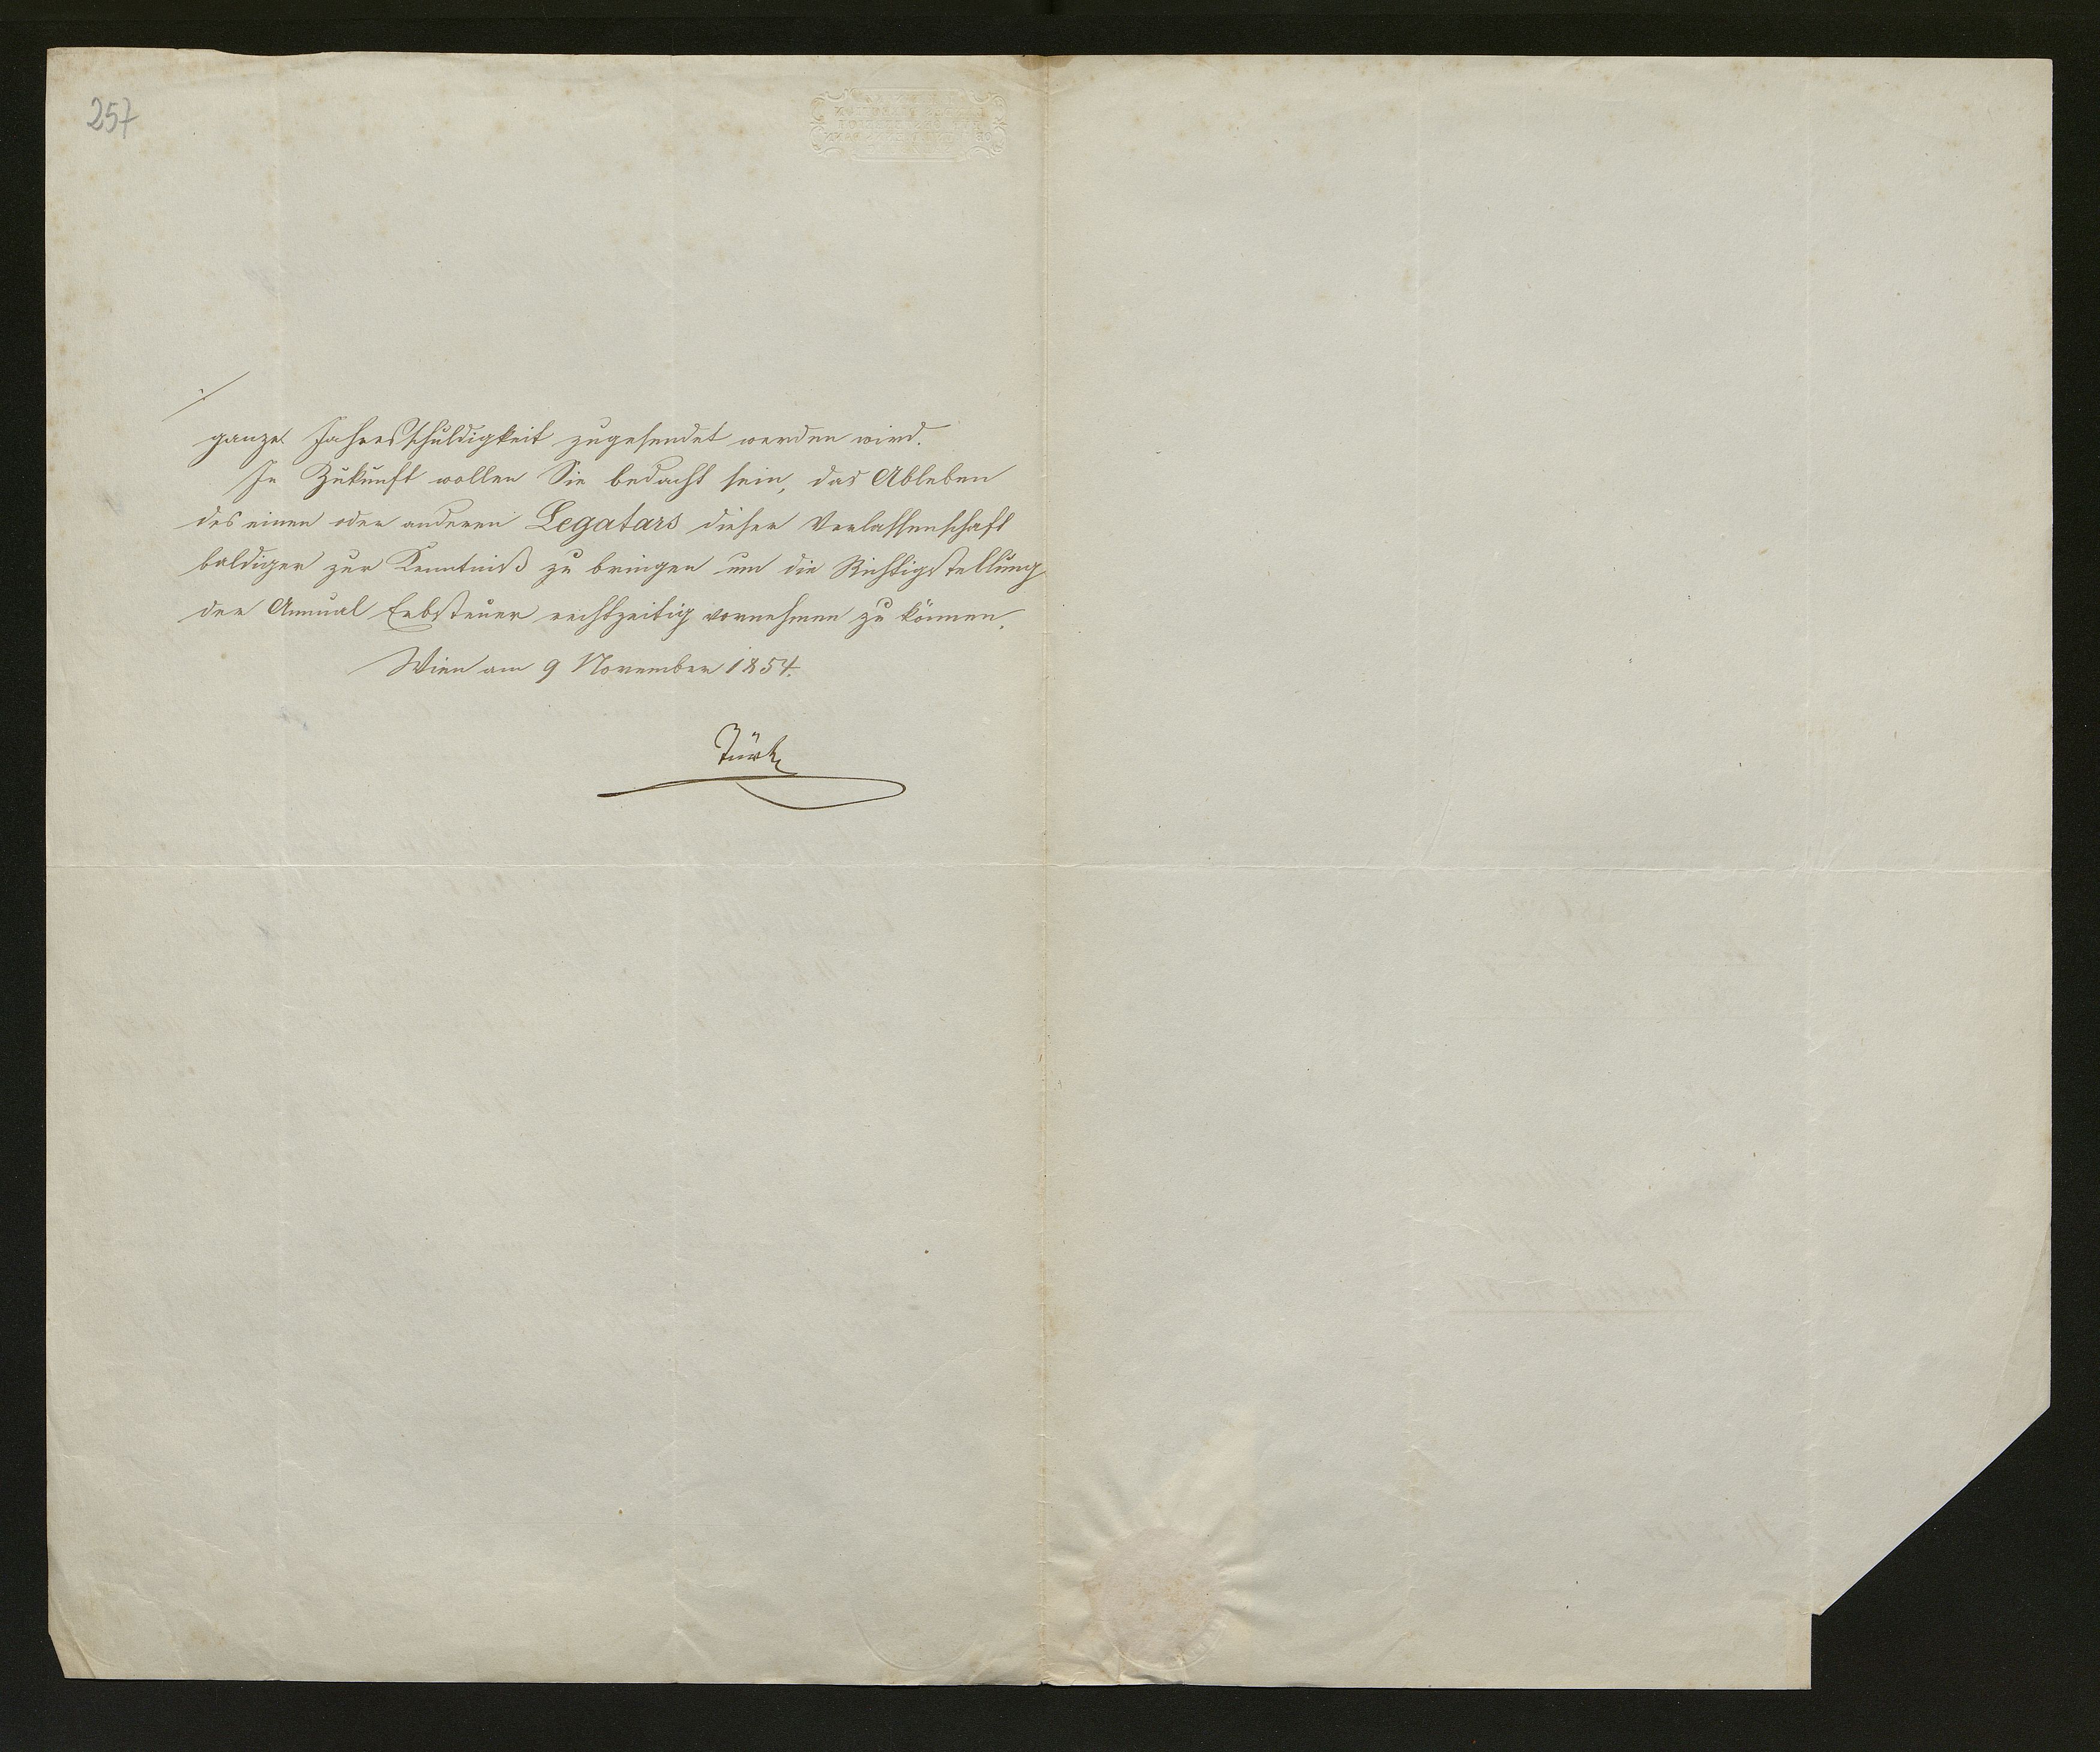 257
ganze Jahresschuldigkeit zugesendet werden wird.
In Zukunft wollen Sie bedacht sein, das Ableben
des einen oder anderen Legatars dieser Verlassenschaft
baldiger zur Kenntniß zu bringen um die Richtigstellung
der Annual Erbsteuer rechtzeitig vornehmen zu können.
Wien am 9 November 1854.
Türk